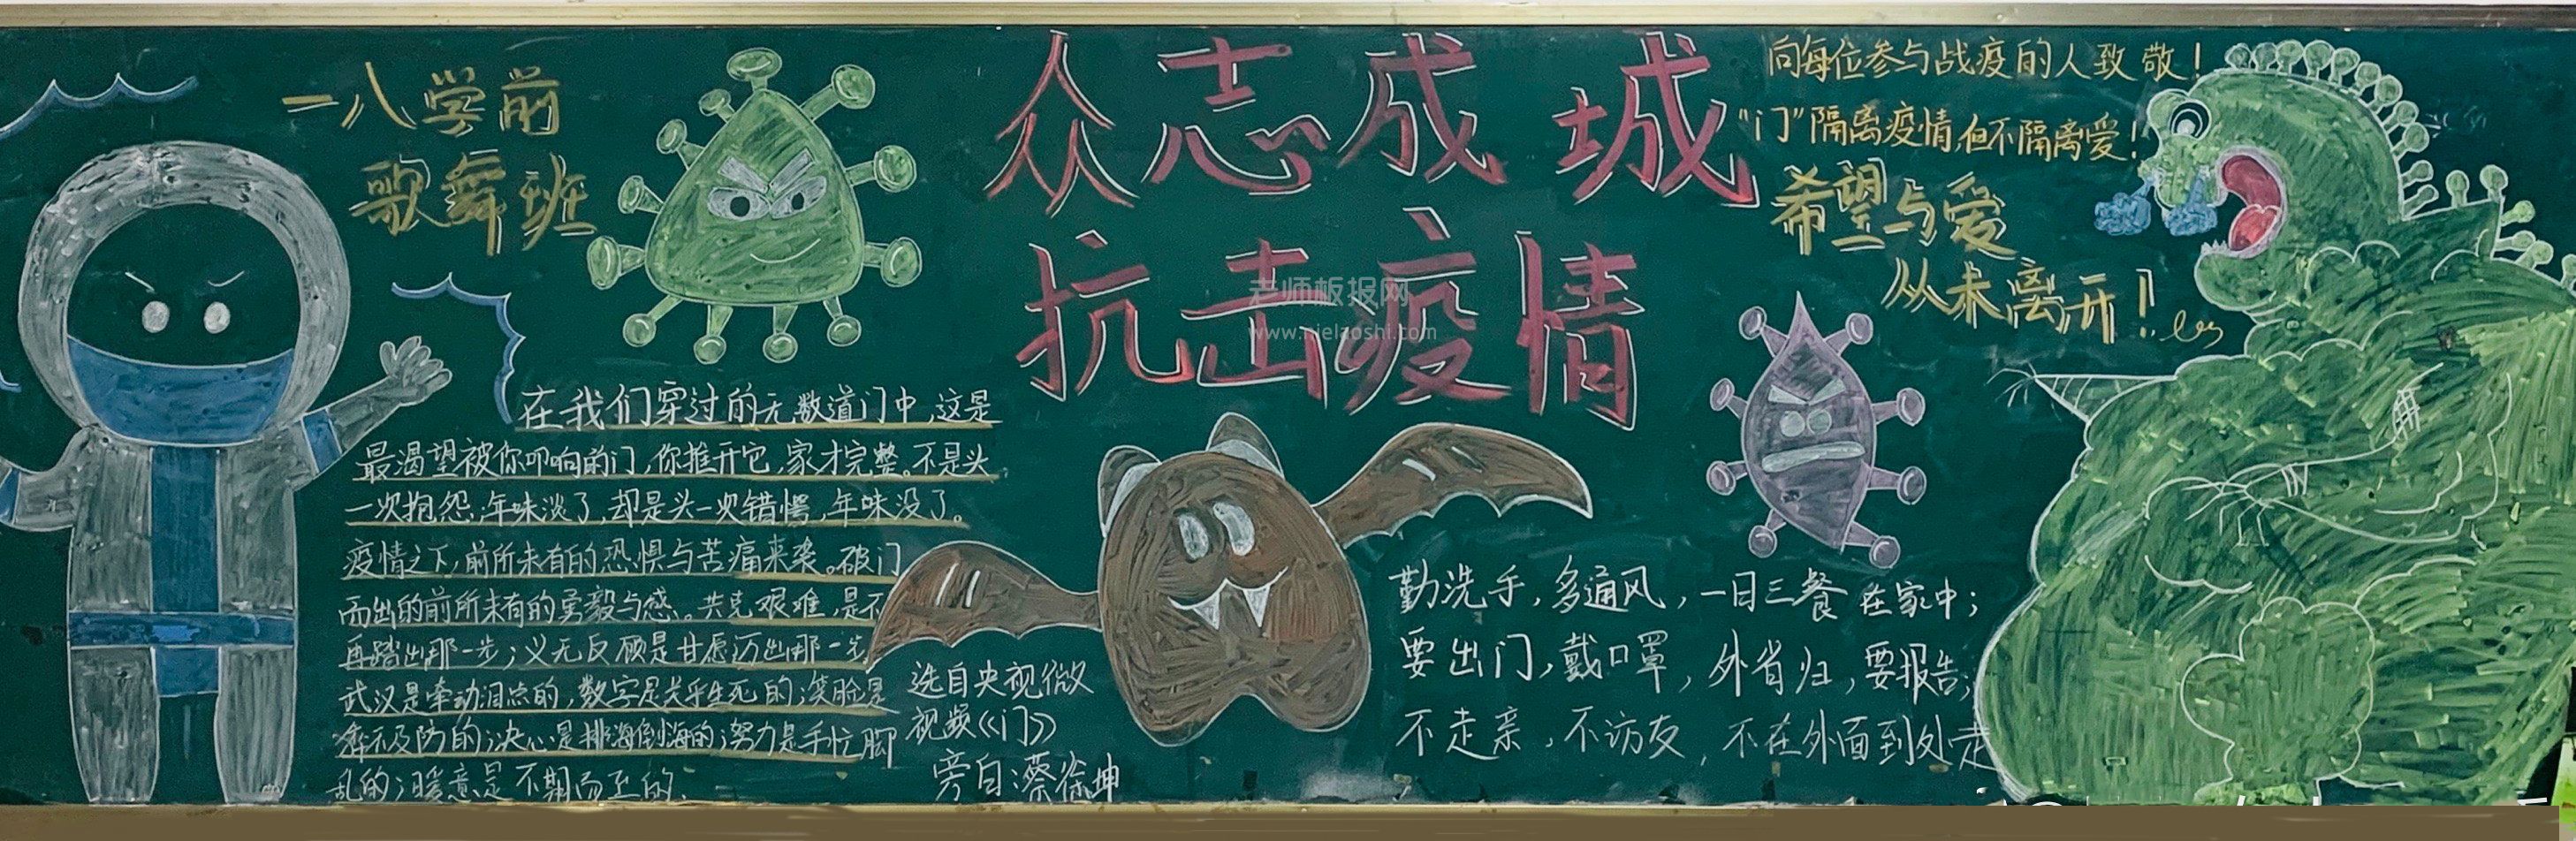 一八学前
歌舞班
众志成城
抗击疫情
向每位参与战疫的人致敬!
"门"隔离疫情,但不隔离爱!
希望与爱
从未离开!
老师板报网
在我们穿过的无数道门中,这是
最渴望被你叩响的门,你推开它,家才完整。不是头
一次抱怨,年味淡了,却是头一次错愕,年味没了。
疫情之下,前所未有的恐惧与苦痛来袭。破门
而出的前所未有的勇毅与感。共克艰难,是不
再踏出那一步;义无反顾是甘愿迈出那一步
武汉是牵动泪点的,数字是关乎生死的;笑脸是
猝不及防的;决心是排海倒海的;努力是手忙脚
乱的;暖意是不期而至的、
选自央视微
视频《门》
旁白:蔡徐坤
勤洗手,多通风,一日三餐在家中;
要出门,戴口罩,外省归,要报告;
不走亲,不访友,不在外面到处走